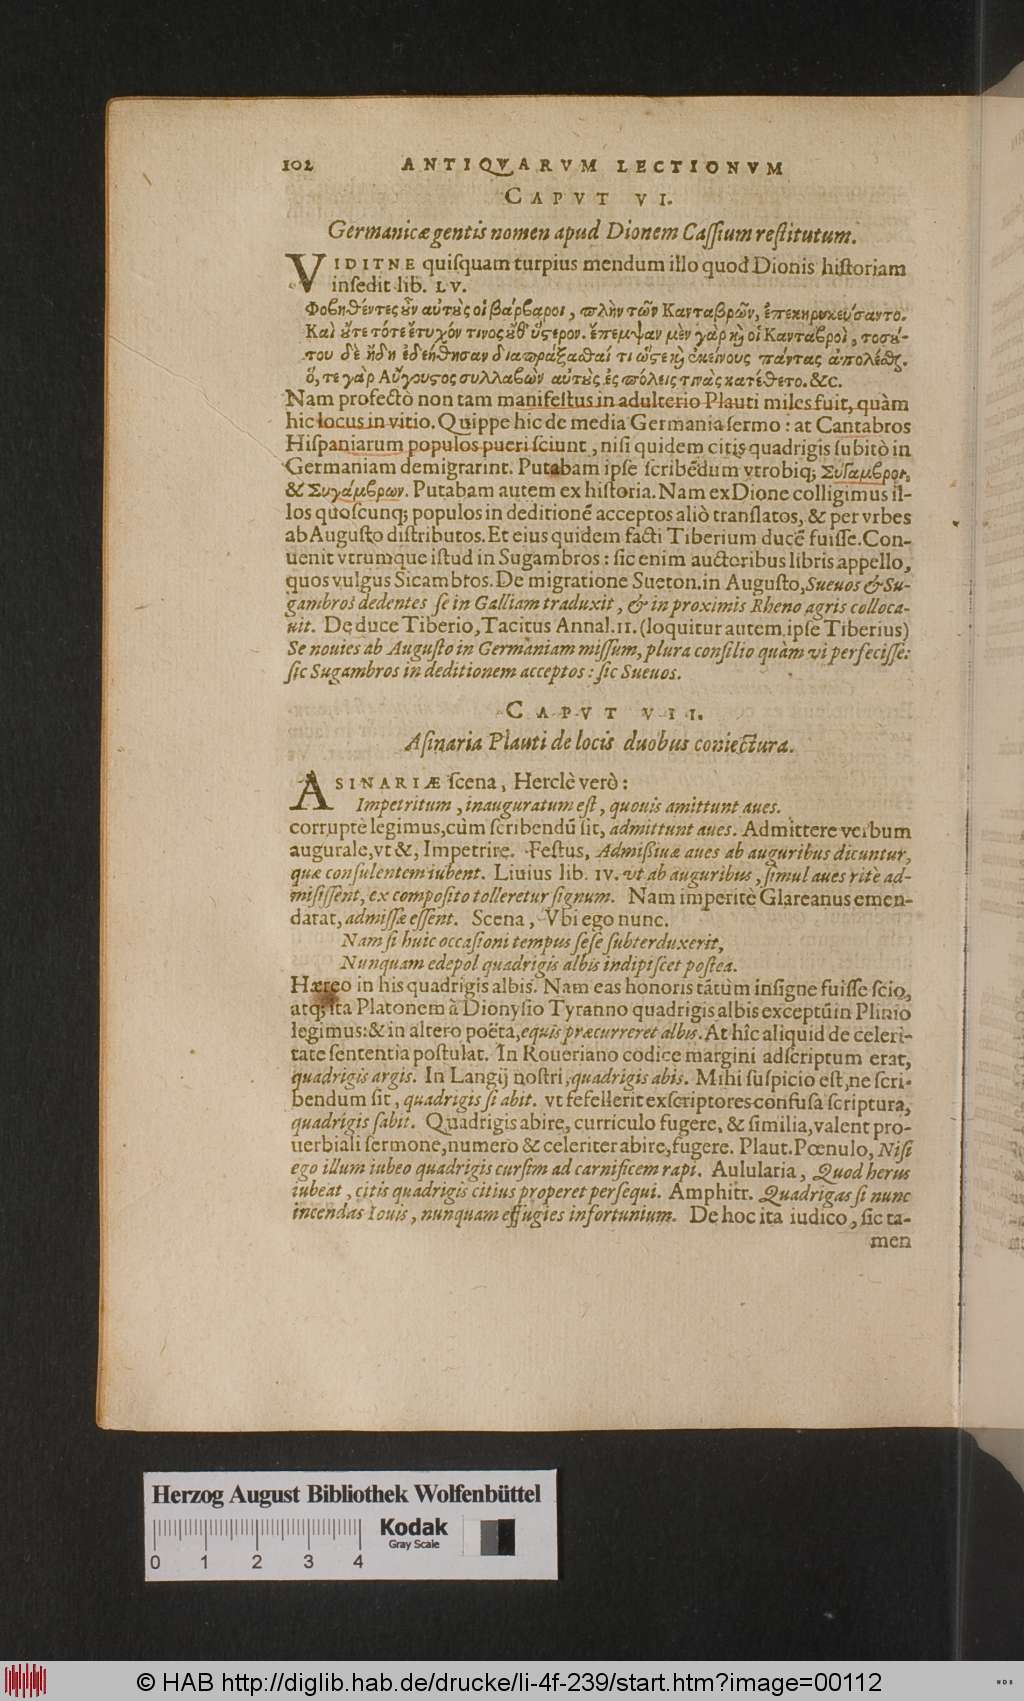 102 ANTIQVARVM LECTIONVM
CAPVT VI.
Germanicæ gentis nomen apud Dionem Caſſium reſtitutum.
VIDITNE quiſquam turpius mendum illo quod Dionis hiſtoriam
inſedit lib. LV.
Φοβηθέντες ȣ͂ν αὐτȣ̀ς οἱ βάρβαροι, πλὴν τῶν Κανταβρῶν, ἐπεκηρυκεύσαντο.
Καὶ ȣ̓́τε τότε ἔτυχόν τινος ȣ̓́θ' ὕςερον. ἔπεμψαν μὲν γὰρ ϗ̀ οἱ Κανταβροὶ, τοσού-
του δὲ ἤδη ἐδεήθησαν διαπράξασθαί τι ὥςε ϗ̀ ἐκείνους πάντας ἀπολέσθ.
ὅ, τε γὰρ Αὔγουςος συλλαβὼν αὐτȣ̀ς ἐς πόλεις τινὰς κατέθετο. &c.
Nam profectò non tam manifeſtus in adulterio Plauti miles fuit, quàm
hic locus in vitio. Quippe hic de media Germania ſermo: at Cantabros
Hiſpaniarum populos pueri ſciunt, niſi quidem citis quadrigis ſubitò in
Germaniam demigrarint. Putabam ipſe ſcribēdum vtrobiq; Σύγαμβροι,
& Συγάμβρων. Putabam autem ex hiſtoria. Nam ex Dione colligimus il-
los quoſcunq; populos in deditionē acceptos aliò tranſlatos, & per vrbes
ab Auguſto diſtributos. Et eius quidem facti Tiberium ducē fuiſſe. Con-
uenit vtrumque iſtud in Sugambros: ſic enim auctoribus libris appello,
quos vulgus Sicambros. De migratione Sueton. in Auguſto, Sueuos & Su-
gambros dedentes ſe in Galliam traduxit, & in proximis Rheno agris colloca-
uit. De duce Tiberio, Tacitus Annal. II. (loquitur autem ipſe Tiberius)
Se nouies ab Auguſto in Germaniam miſſum, plura conſilio quàm vi perfeciſſe:
ſic Sugambros in deditionem acceptos: ſic Sueuos.
CAPVT VII.
Aſinaria Plauti de locis duobus coniectura.
ASINARIÆ ſcena, Herclè verò:
Impetritum, inauguratum eſt, quouis amittunt aues.
corruptè legimus, cùm ſcribendū ſit, admittunt aues. Admittere verbum
augurale, vt &, Impetrire. Feſtus, Admißiuæ aues ab auguribus dicuntur,
quæ conſulentem iubent. Liuius lib. IV. vt ab auguribus, ſimul aues ritè ad-
miſiſſent, ex compoſito tolleretur ſignum. Nam imperitè Glareanus emen-
darat, admiſſæ eſſent. Scena, Vbi ego nunc.
Nam ſi huic occaſioni tempus ſeſe ſubterduxerit,
Nunquam edepol quadrigis albis indipiſcet poſtea.
Hæreo in his quadrigis albis. Nam eas honoris tātùm inſigne fuiſſe ſcio,
atq; ita Platonem à Dionyſio Tyranno quadrigis albis exceptū in Plinio
legimus: & in altero poëta, equis præcurreret albis. At hîc aliquid de celeri-
tate ſententia poſtulat. In Roueriano codice margini adſcriptum erat,
quadrigis argis. In Langij noſtri, quadrigis abis. Mihi ſuſpicio eſt, ne ſcri-
bendum ſit, quadrigis ſi abit. vt fefellerit exſcriptores confuſa ſcriptura,
quadrigis ſabit. Quadrigis abire, curriculo fugere, & ſimilia, valent pro-
uerbiali ſermone, numero & celeriter abire, fugere. Plaut. Pœnulo, Niſi
ego illum iubeo quadrigis curſim ad carnificem rapi. Aulularia, Quod herus
iubeat, citis quadrigis citius properet perſequi. Amphitr. Quadrigas ſi nunc
incendas Iouis, nunquam effugies infortunium. De hoc ita iudico, ſic ta-
men
Herzog August Bibliothek Wolfenbüttel
Kodak
Gray Scale
0 1 2 3 4
© HAB http://diglib.hab.de/drucke/li-4f-239/start.htm?image=00112